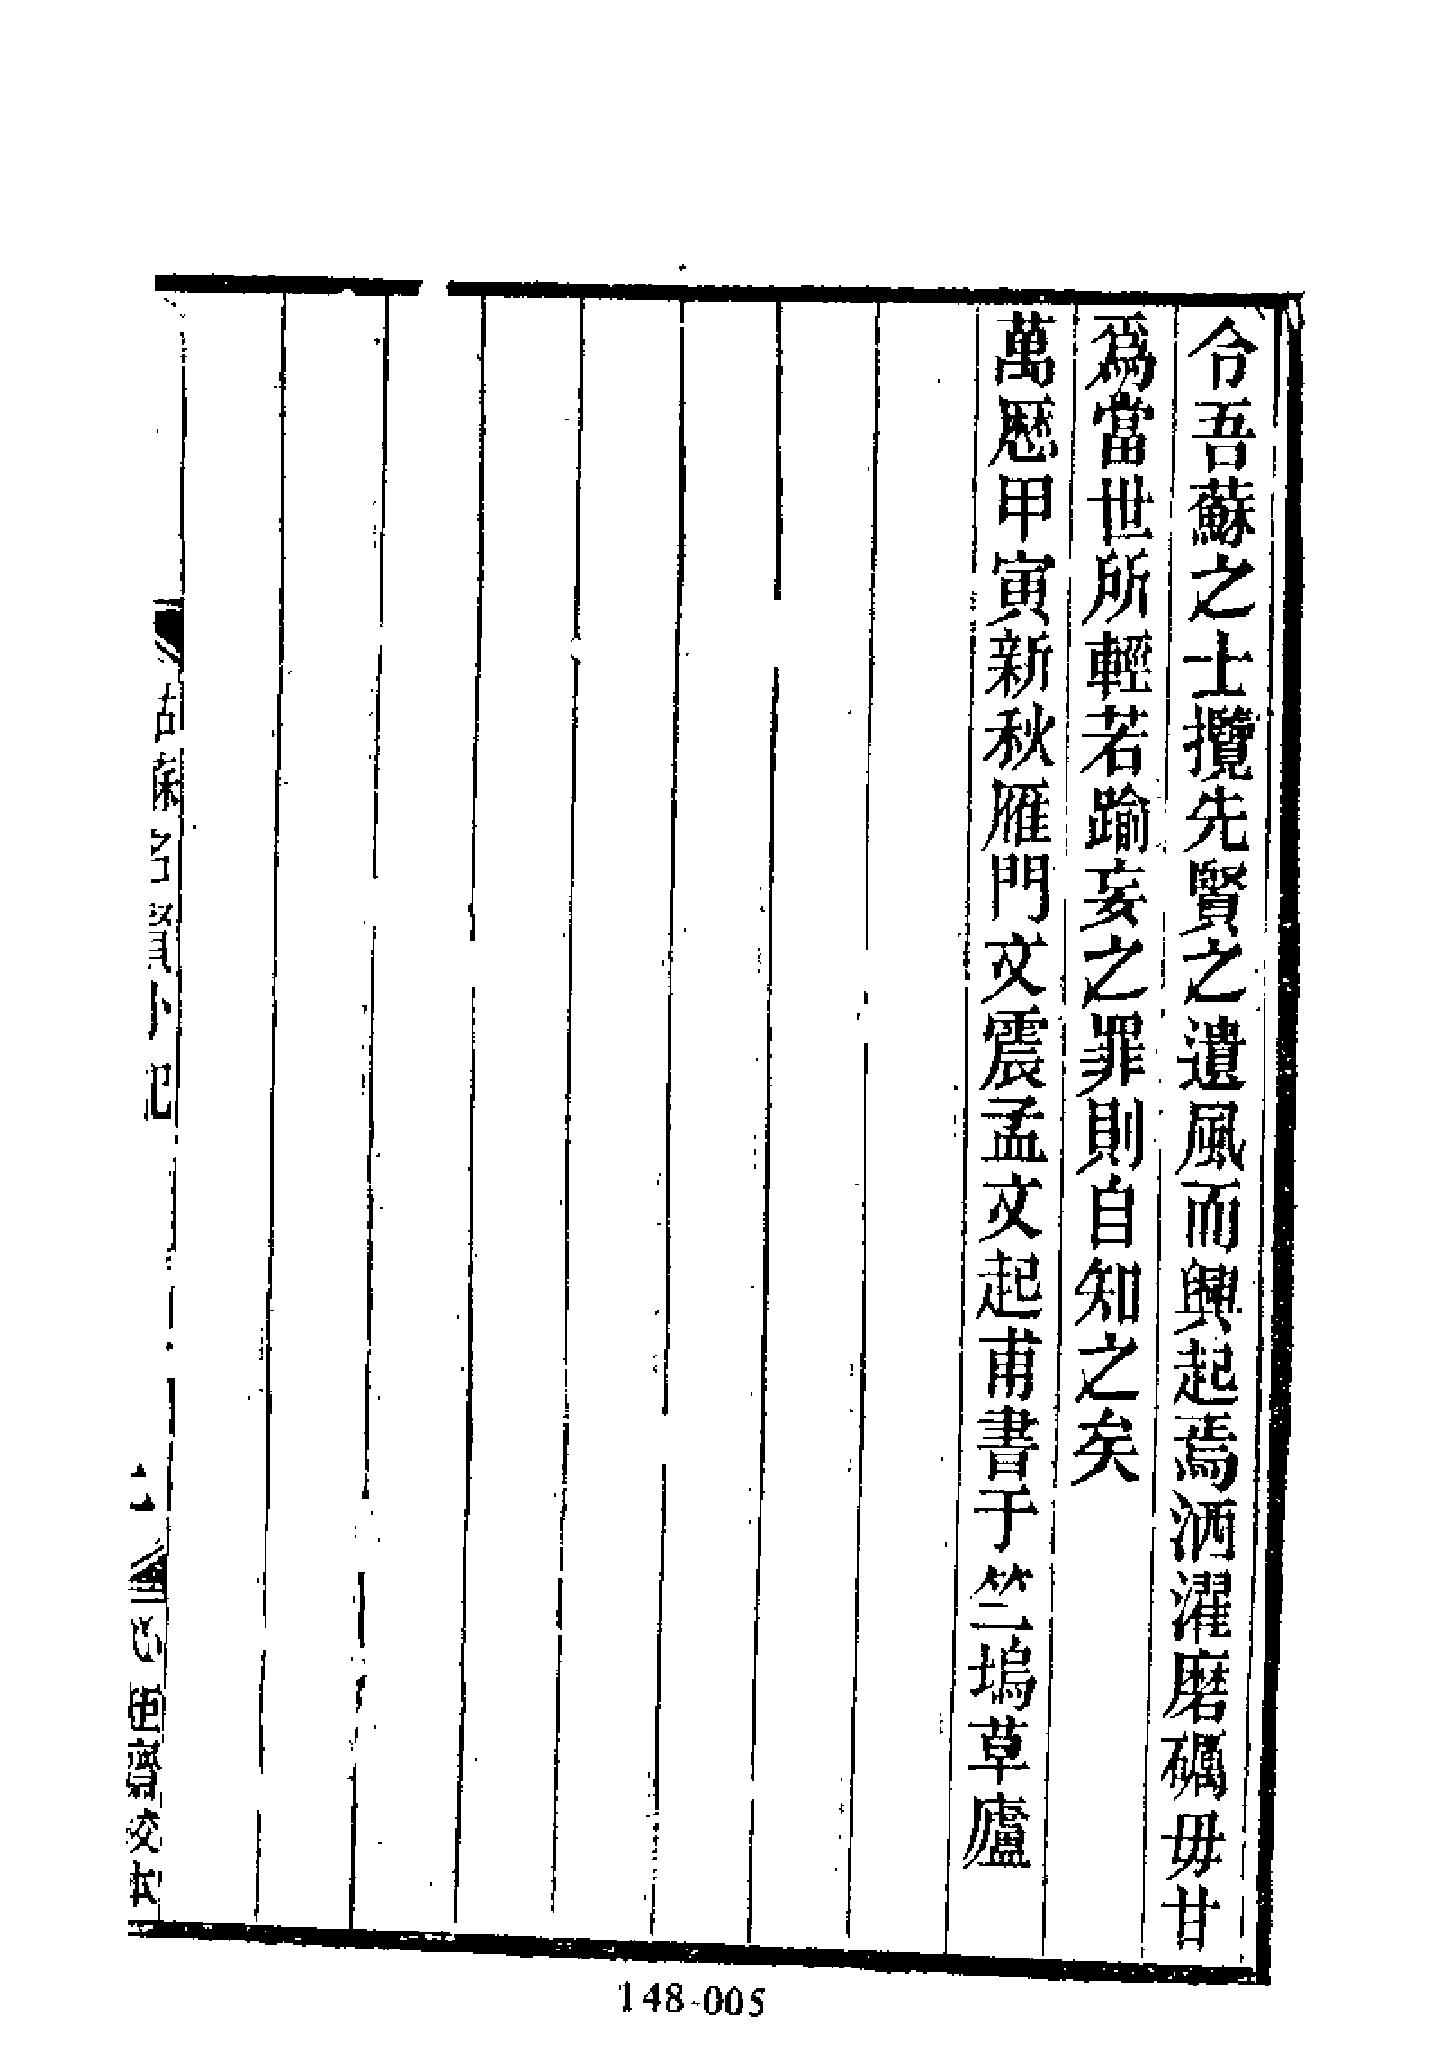 令吾蘇之士攬先賢之遺風而興起焉洒濯磨礪毋甘
爲當世所輕若踰妄之罪則自知之矣
萬厯甲寅新秋雁門文震孟文起甫書于竺塢草廬
姑蘇名賢小記
二
心矩齋校本
148-005